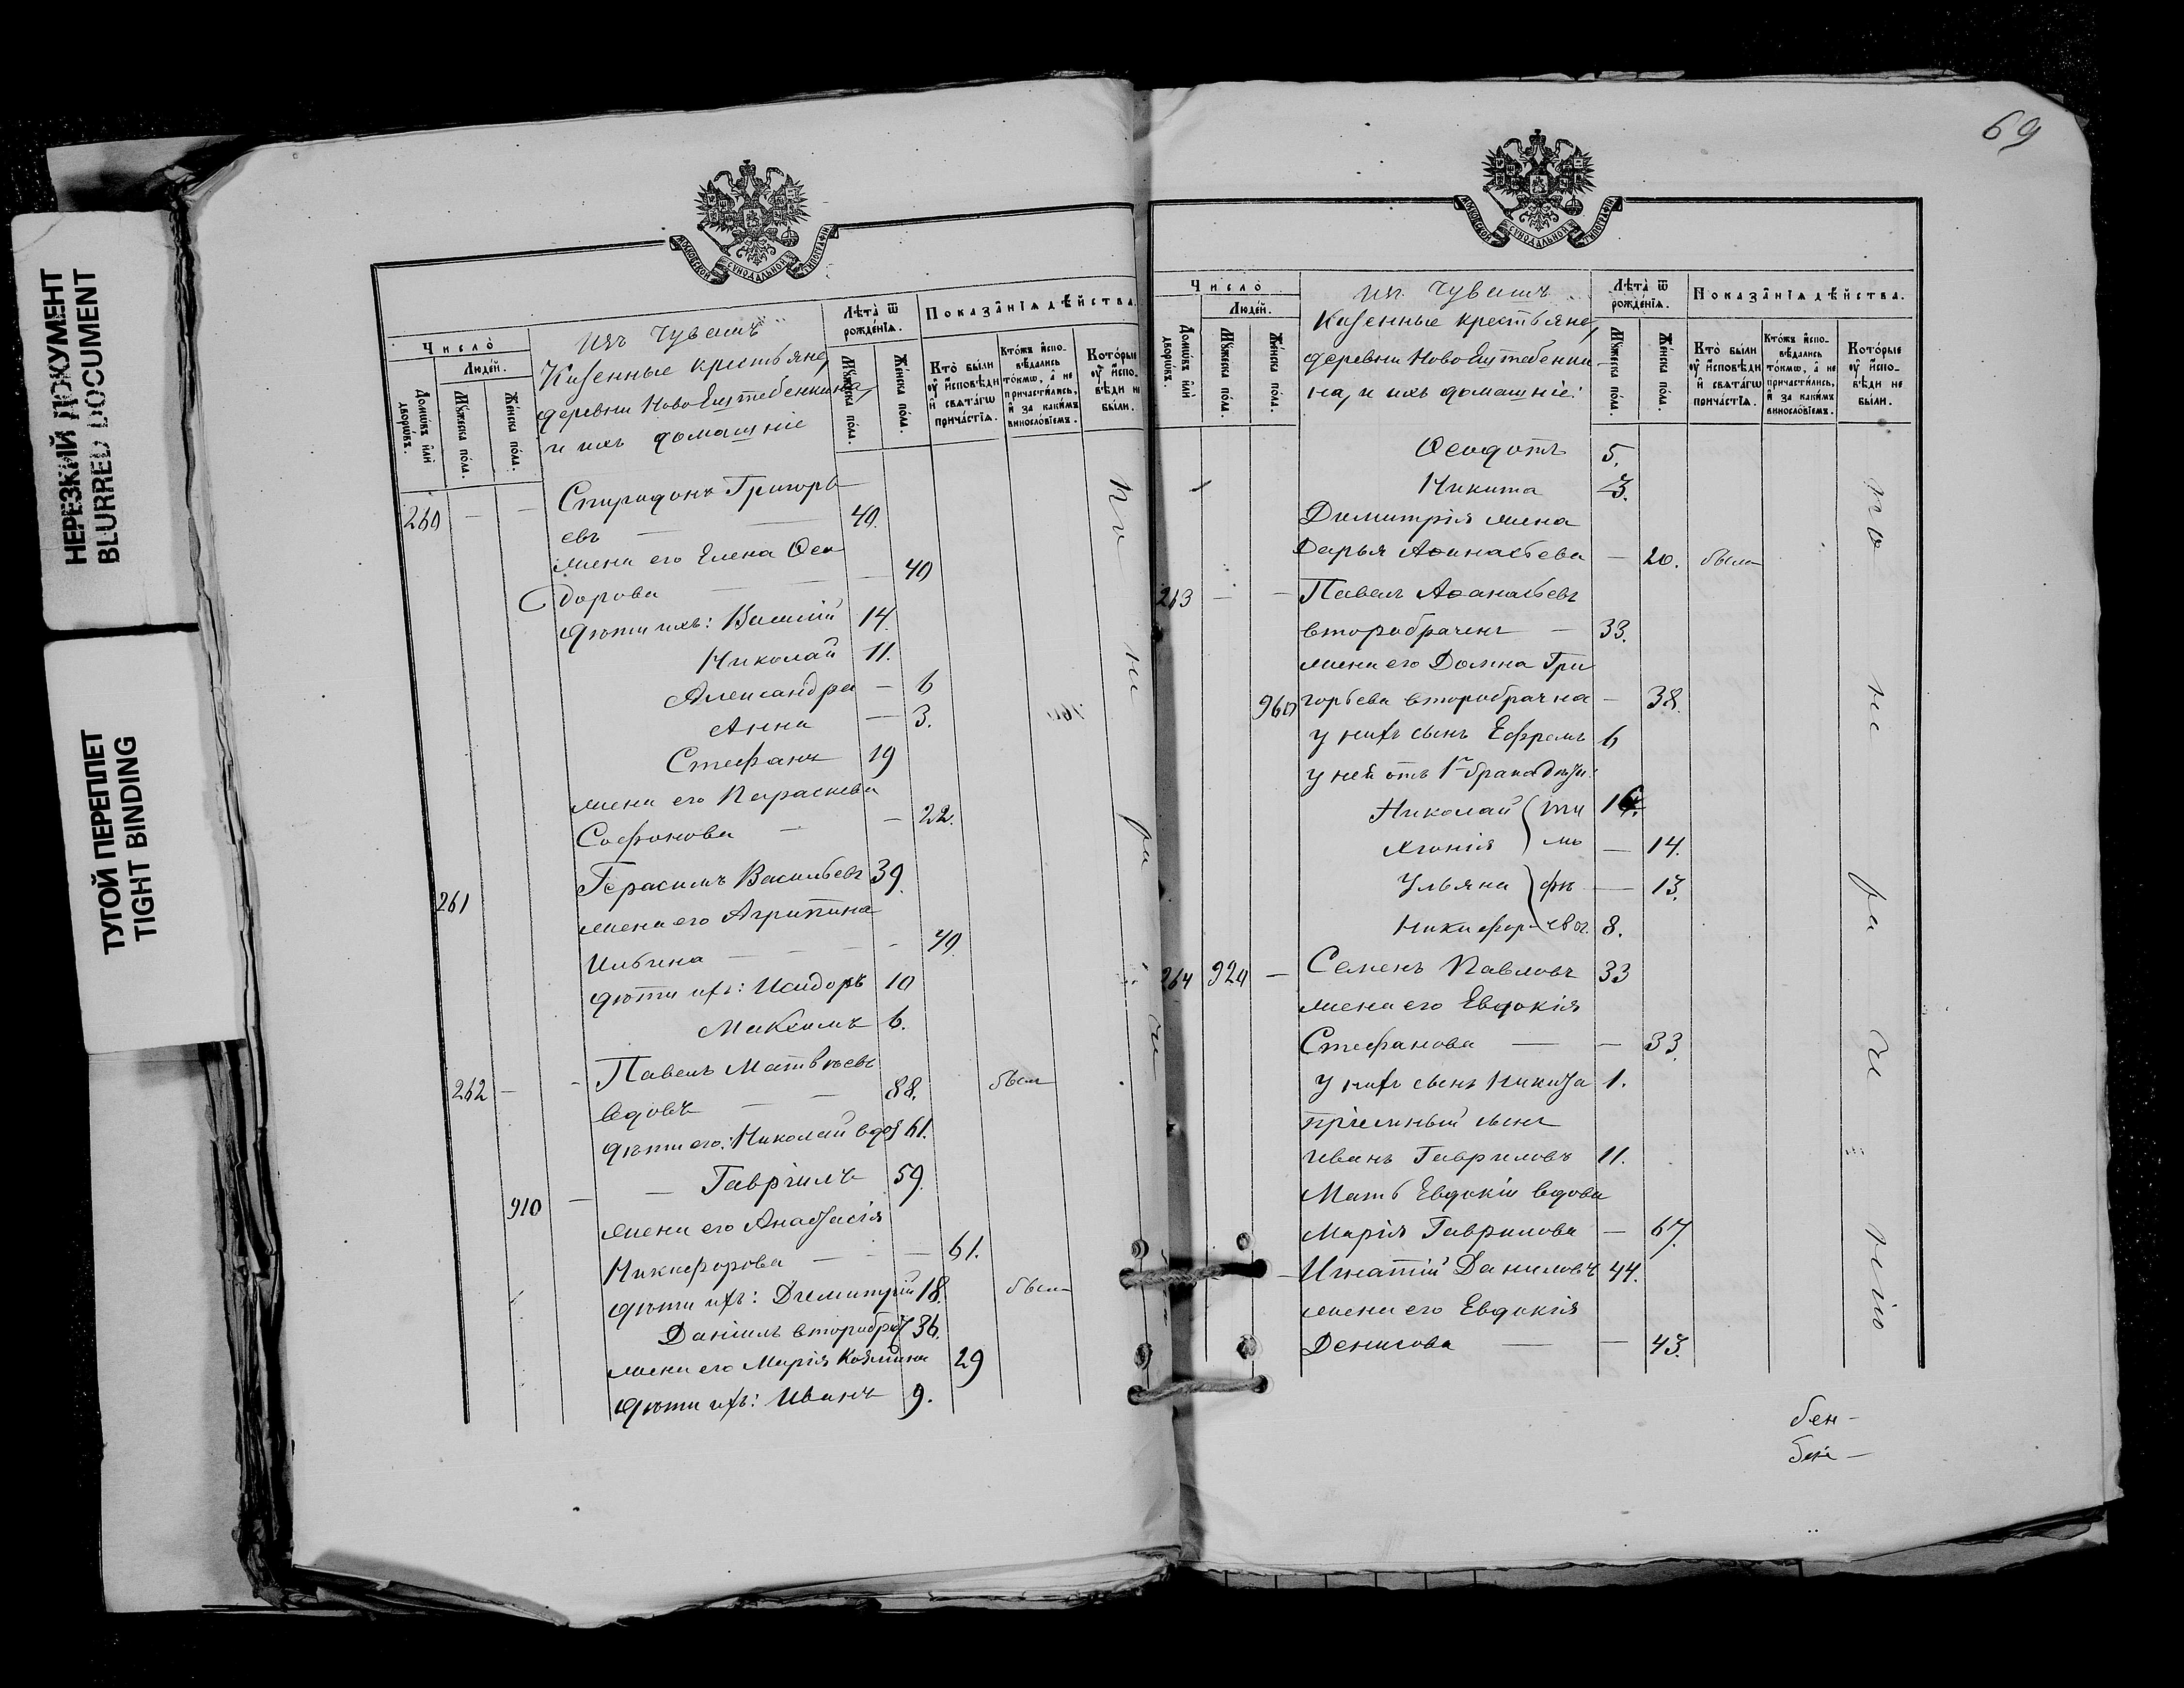 НЕРЕЗКИЙ ДОКУМЕНТ
BLURRED DOCUMENT
ТУГОЙ ПЕРЕПЛЕТ
TIGHT BINDING
МОСКОВСКОЙ СѴНОДАЛЬНОЙ ТИПОГРАФІИ
Число̀
Людей.
Домѡвъ и҆лѝ дворѡвъ.
Мꙋжеска пола.
Женска пола.
Изъ Чувашъ
Казенные крестьяне,
деревни
и ихъ домашніе
Лѣта̀ ѿ рожденїѧ.
Мꙋжеска пола.
Женска пола.
Показанїѧ дѣйства.
Кто̀ были оу҆ и҆сповѣди и҆ свѧтагѡ причастїѧ.
Ктожъ и҆сповѣдались токмѡ, а҆ не причастились, и҆ за какимъ винословїемъ.
Которые оу҆ и҆сповѣди не были.
260 — — Спиридонъ Григорь
евъ — — 40.
жена его Елена Ѳео
дорова — — — 40
дѣти ихъ: Василій 14.
Николай 11.
Александра — 6
Анна — 3.
Стефанъ 19
жена его Параскева
Софонова — — 22.
261 Герасимъ Васильевъ 39.
жена его Агрипина
Ильина — — — 40.
дѣти ихъ: Исидоръ 10
Максимъ 6.
262 — - Павелъ Матвѣевъ
вдовъ — — 88. былъ
дѣти его: Николай вдов 61.
910 — — Гавріилъ 59.
жена его Анастасія
Никифорова — — 61.
дѣти ихъ: Димитрій 18. былъ
Даніилъ второбр 36.
жена его Марія Козмина 29
дѣти ихъ: Иванъ 9.
по не ра че
69
МОСКОВСКОЙ СѴНОДАЛЬНОЙ ТИПОГРАФІИ
Число̀
Людей.
Домѡвъ и҆лѝ дворѡвъ.
Мꙋжеска пола.
Женска пола.
Изъ Чувашъ
Казенные крестьяне,
деревни
на, и ихъ домашніе:
Лѣта̀ ѿ рожденїѧ.
Мꙋжеска пола.
Женска пола.
Показанїѧ дѣйства.
Кто̀ были оу҆ и҆сповѣди и҆ свѧтагѡ причастїѧ.
Ктожъ и҆сповѣдались токмѡ, а҆ не причастились, и҆ за какимъ винословїемъ.
Которые оу҆ и҆сповѣди не были.
Ѳеодотъ 5.
Никита 3.
Димитрія жена
Дарья Аѳанасьева — 20. была
263 — — Павелъ Аѳанасьевъ
второбраченъ — 33.
жена его Домна Гри
960 горьева второбрачна — 38.
у нихъ сынъ Ефремъ 6
у ней отъ 1го брака дѣти:
Николай ти 16
Агнія мо — 14.
Ульяна фѣ — 13.
Никифоръ евы. 8.
264 920 — Семенъ Павловъ 33
жена его Евдокія
Стефанова — — 33.
у нихъ сынъ Никита 1.
пріемный сынъ
Иванъ Гавриловъ 11.
Мать Евдокіи вдова
Марія Гаврилова — 67.
— Игнатій Даниловъ 44.
жена его Евдокія
Денисова — — 43.
по не ра че нію